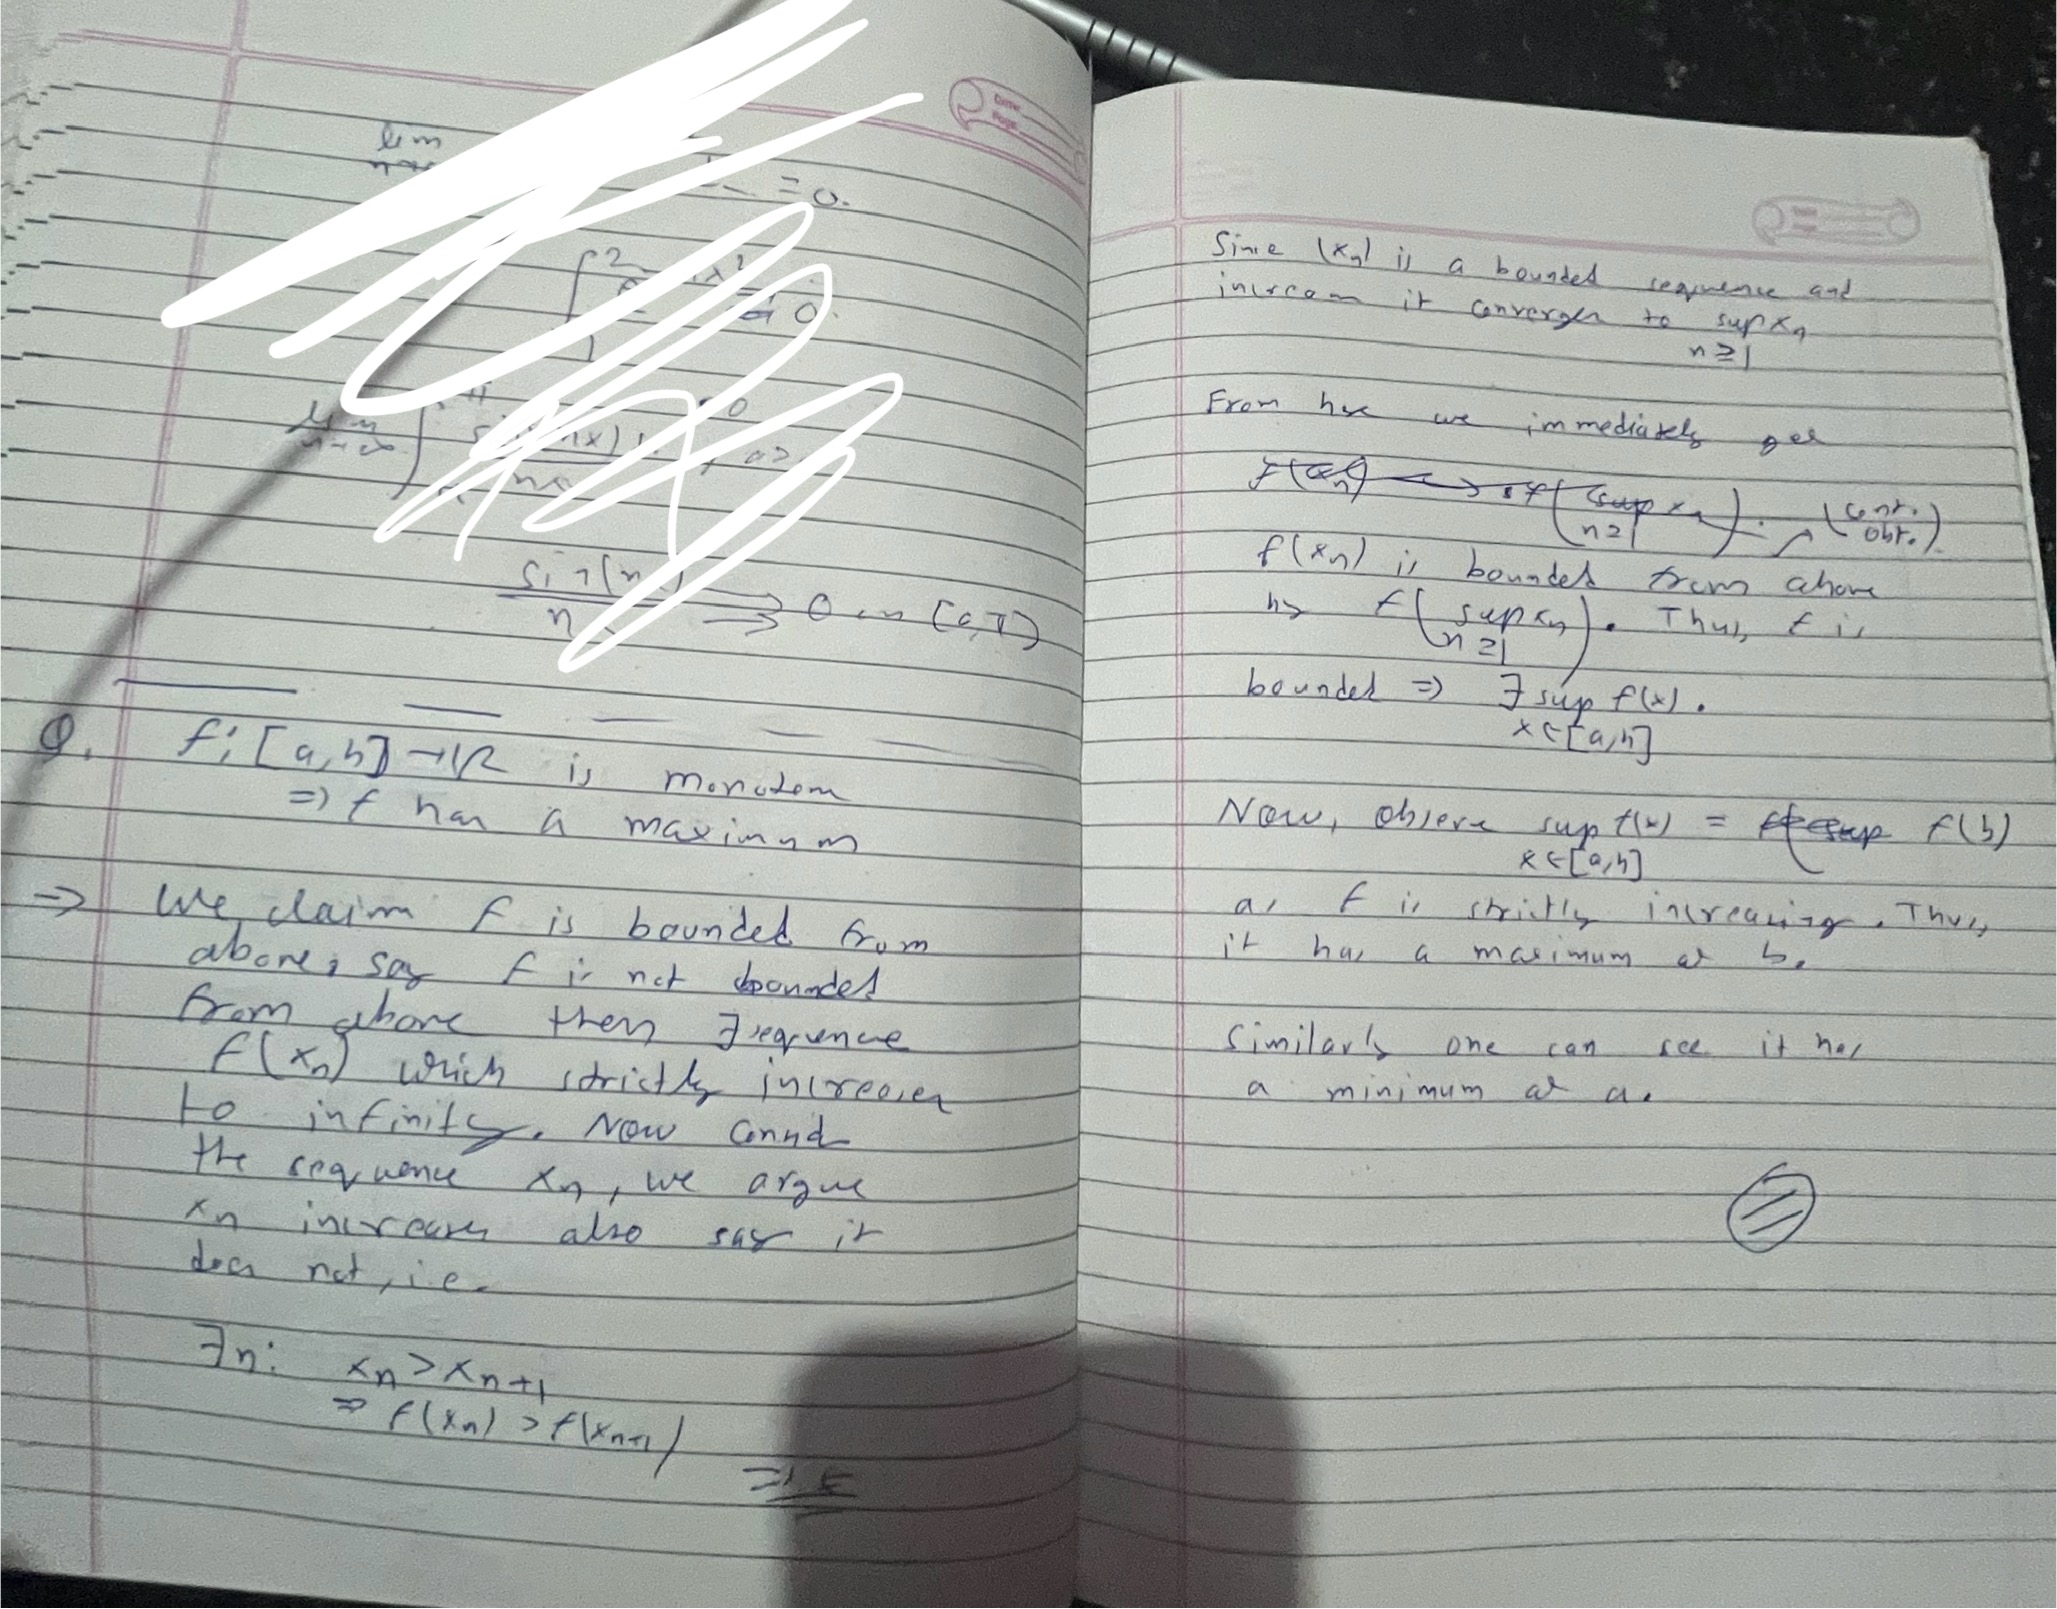 lim
= 0.
0.
sin(n
n
→ 0 on [a,π]
Q. f: [a,b] → ℝ is monotone
⇒ f has a maximum
⇒ We claim f is bounded from
above, say f is not bounded
from above then ∃ sequence
f(xn) which strictly increases
to infinity. Now
the sequence xn, we argue
xn increases also say it
does not, i.e.
∃n: xn > xn+1
⇒ f(xn) > f(xn+1)
⇒⇐
Date
Page
Since (xn) is a bounded sequence and
it converges to sup xn
n≥1
From here we immediately get
f(xn) → f(sup xn). (cont.
n≥1 obt.)
f(xn) is bounded from above
by f(sup xn). Thus, f is
n≥1
bounded ⇒ ∃ sup f(x).
x∈[a,b]
Now, observe sup f(x) = f(b)
x∈[a,b]
as f is strictly increasing. Thus,
it has a maximum at b.
Similarly one can see it has
a minimum at a.